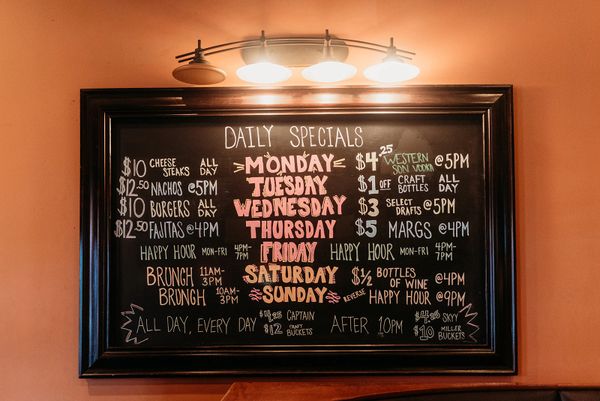 DAILY SPECIALS
$10 CHEESE STEAKS ALL DAY MONDAY $4.25 WESTERN SON VODKA @5PM
$12.50 NACHOS @5PM TUESDAY $1 OFF CRAFT BOTTLES ALL DAY
$10 BURGERS ALL DAY WEDNESDAY $3 SELECT DRAFTS @5PM
$12.50 FAJITAS @4PM THURSDAY $5 MARGS @4PM
HAPPY HOUR MON-FRI 4PM-7PM FRIDAY HAPPY HOUR MON-FRI 4PM-7PM
BRUNCH 11AM-3PM SATURDAY $1/2 BOTTLES OF WINE @4PM
BRUNCH 10AM-3PM SUNDAY REVERSE HAPPY HOUR @9PM
ALL DAY, EVERY DAY CAPTAIN AFTER 10PM SKYY
$12 CRAFT BUCKETS $10 MILLER BUCKETS